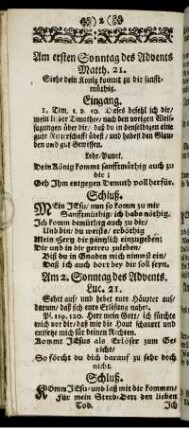 2
Am ersten Sonntag des Advents
Matth. 21.
Siehe dein König kommt zu dir sanfft-
müthig.
Eingang.
1. Tim. 1. v. 19. Dieses befehl ich dir,
mein Timothee, nach den vorigen Weis-
sagungen über dir, daß du in denselbigen eine
gute Ritterschafft übest, und habest den Glau-
ben und gut Gewissen.
Lehr-Punct.
Dein König kommt sanfftmüthig auch zu
dir:
Geh Ihm entgegen Demuth voll herfür.
Schluß.
Mein JEsu, nun so komm zu mir
Sanfftmüthig: ich habe nöthig.
Ich komm demüthig auch zu dir,
Und bin, du weists, erböthig
Mein Hertz dir gäntzlich einzugeben:
Dir und in dir getreu zuleben,
Bist du in Gnaden mich nimmst ein,
Daß ich auch dort bey dir soll seyn.
Am 2. Sonntag des Advents.
Luc. 21.
Sehet auf, und hebet eure Häupter auf,
darum, daß sich eure Erlösung nahet.
Pf. 119. 120. Herr mein Gott, ich fürchte
mich vor dir, daß mir die Haut schauert und
entsetze mich für deinen Rechten.
Kommt JEsus als Erlöser zum Ge-
richt,
So förcht du dich darauf zu sehr doch
nicht.
Schluß.
Komm JEsu, und laß mit die kommen,
Für mein Sterb-Bett den lieben
Tod. Ich